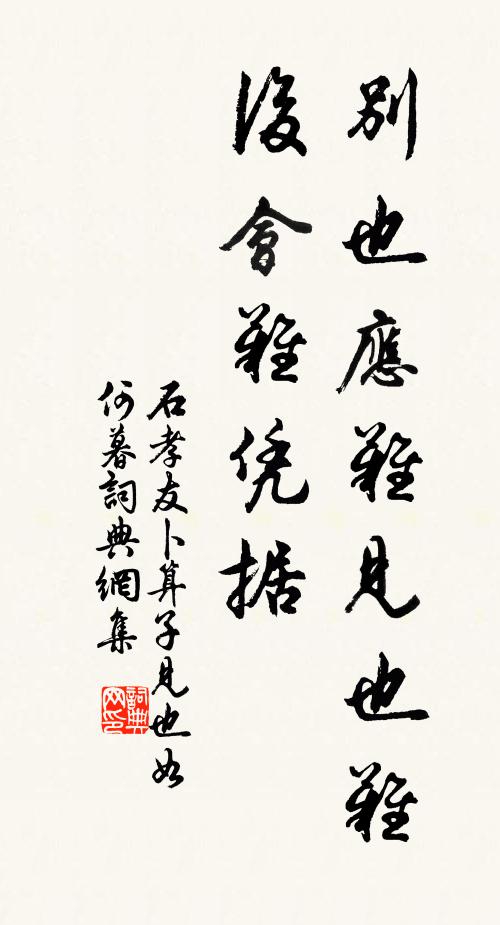 別也應難見也難
後會難凭据
石孝友卜算子見也如
何暮詞典網集
詞典网印